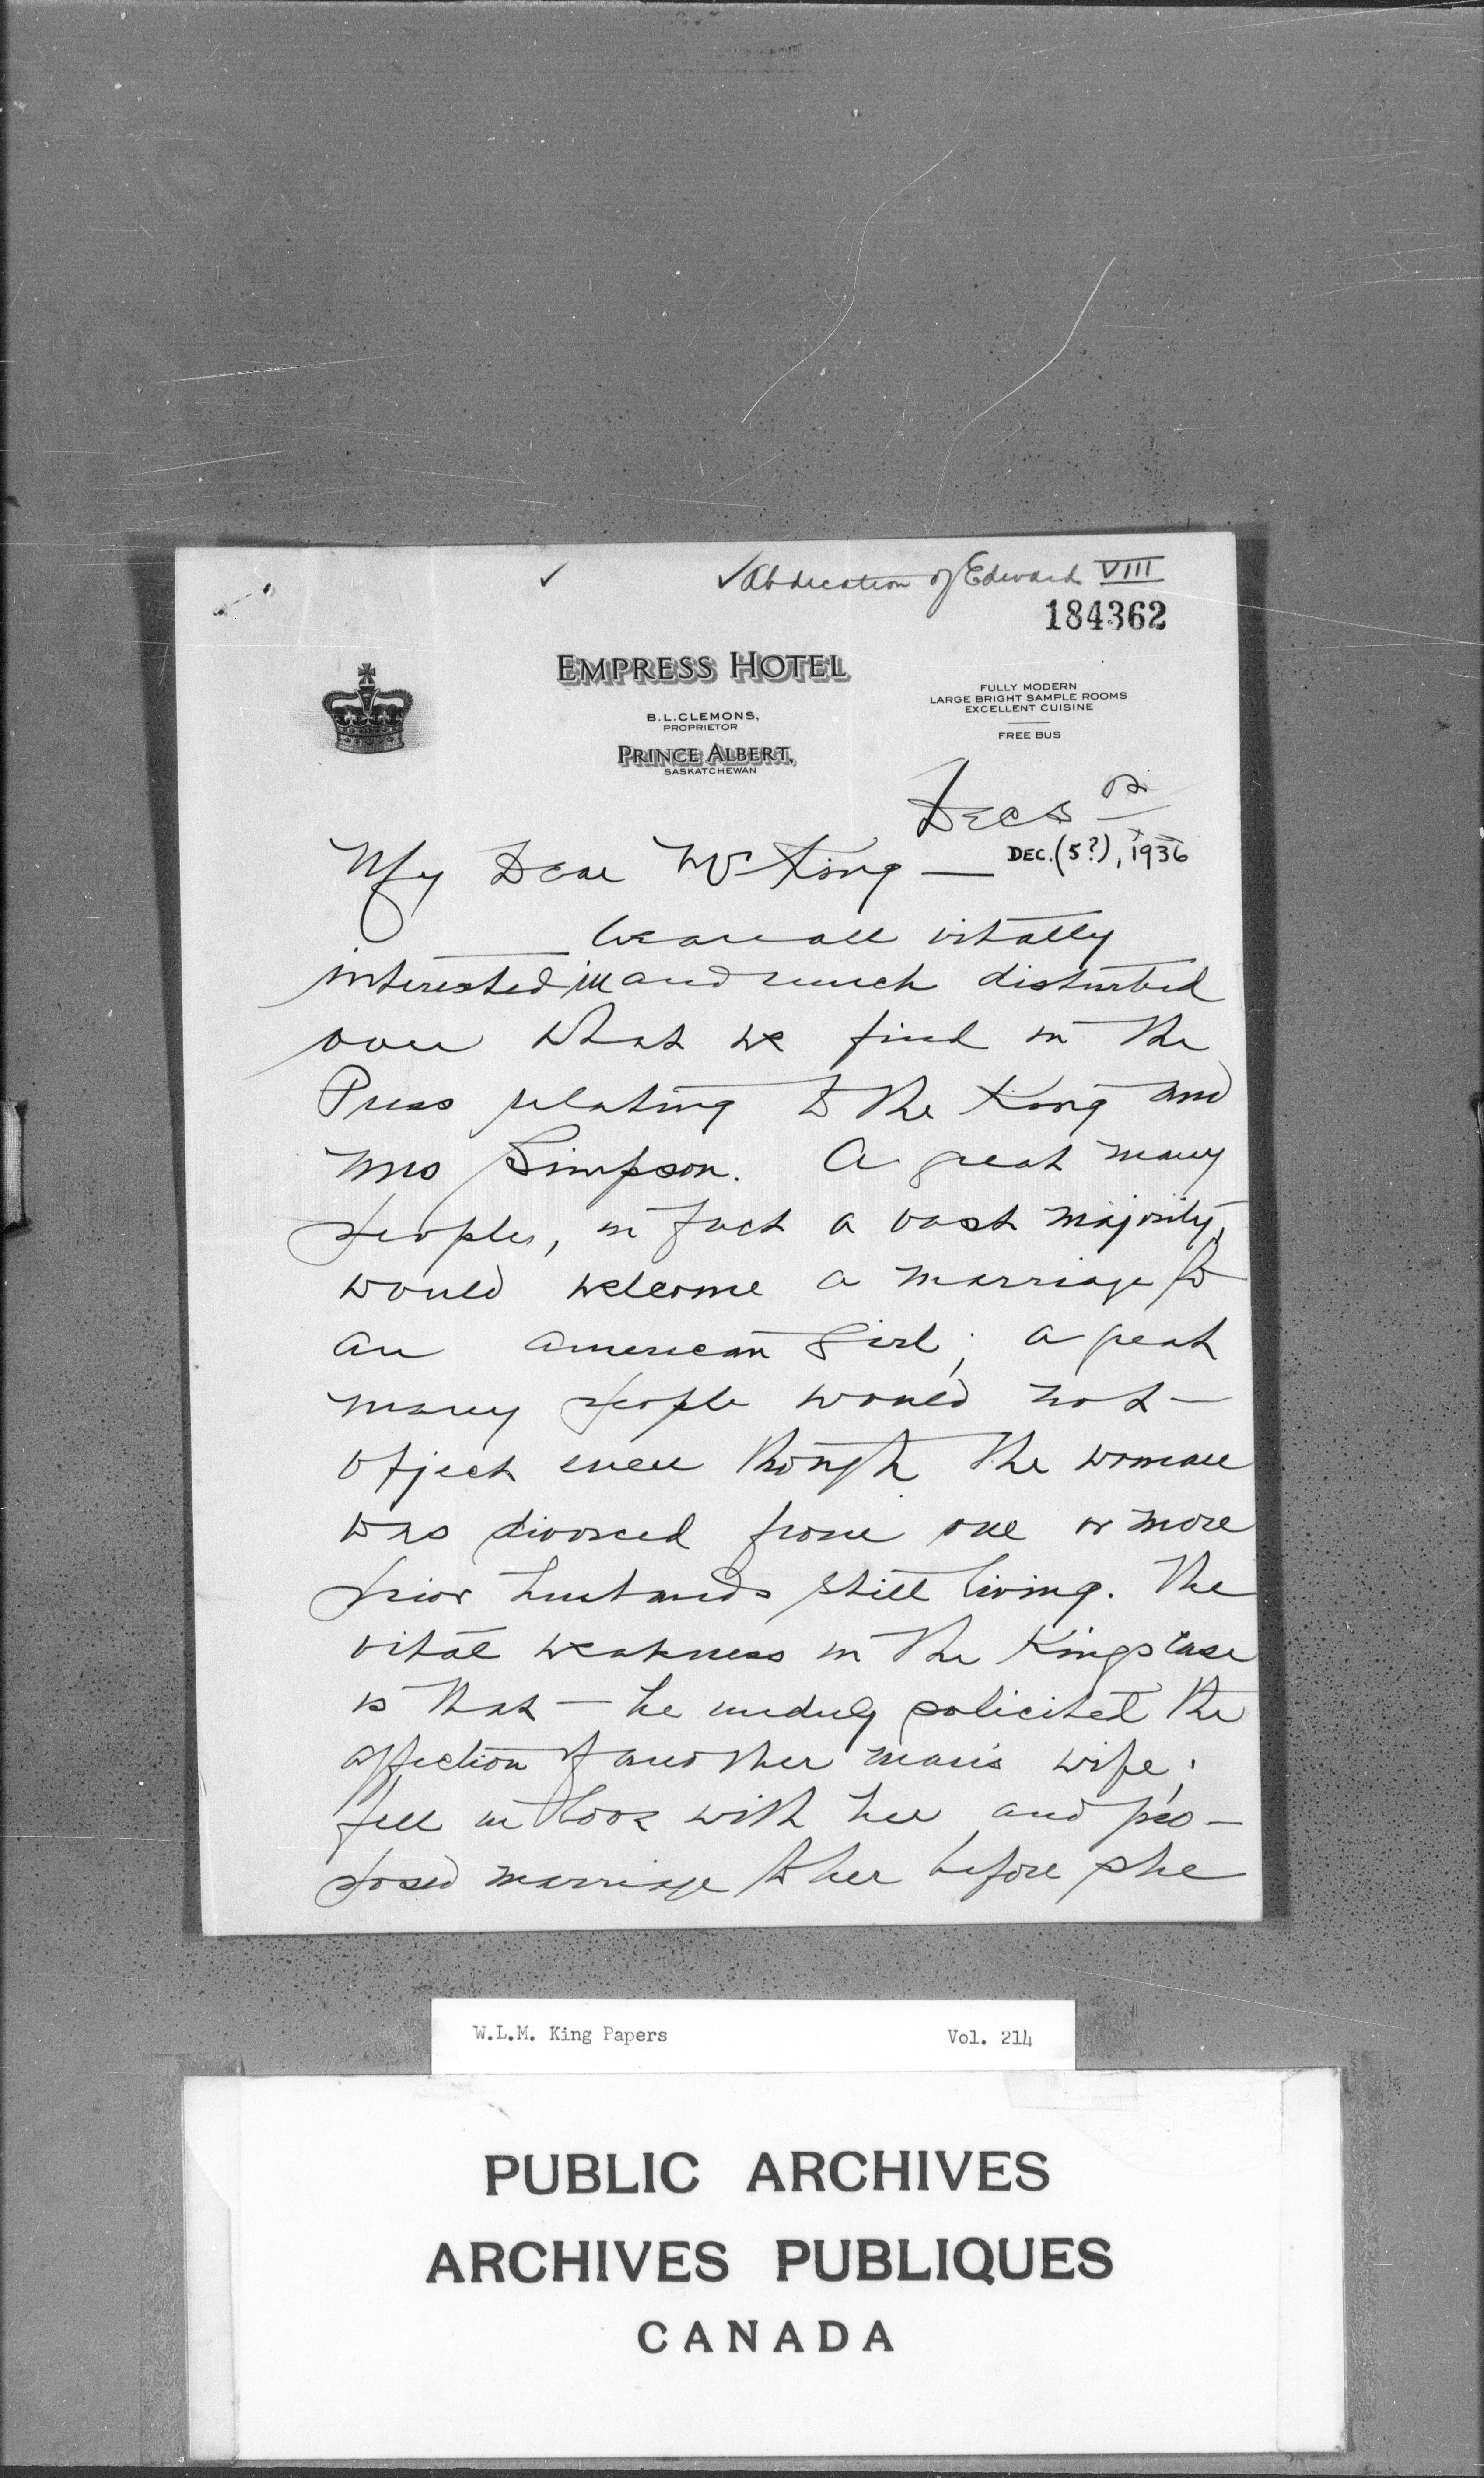 ✓ ✓ Abdication of Edward VIII
184362
EMPRESS HOTEL
B.L.CLEMONS,
PROPRIETOR
PRINCE ALBERT,
SASKATCHEWAN
FULLY MODERN
LARGE BRIGHT SAMPLE ROOMS
EXCELLENT CUISINE
FREE BUS
Dec 5
DEC. (5?), 1936
My Dear Mr King —
We are all vitally
interested in and much disturbed
over what we find in the
Press relating to the King and
Mrs Simpson. A great many
people, in fact a vast majority,
would welcome a marriage to
an American girl; a great
many people would not
object even though the woman
was divorced from one or more
prior husbands still living. The
vital weakness in the Kings case
is that — he unduly solicited the
affection of another man's wife;
fell in love with her and pro-
posed marriage to her before she
W.L.M. King Papers Vol. 214
PUBLIC ARCHIVES
ARCHIVES PUBLIQUES
CANADA